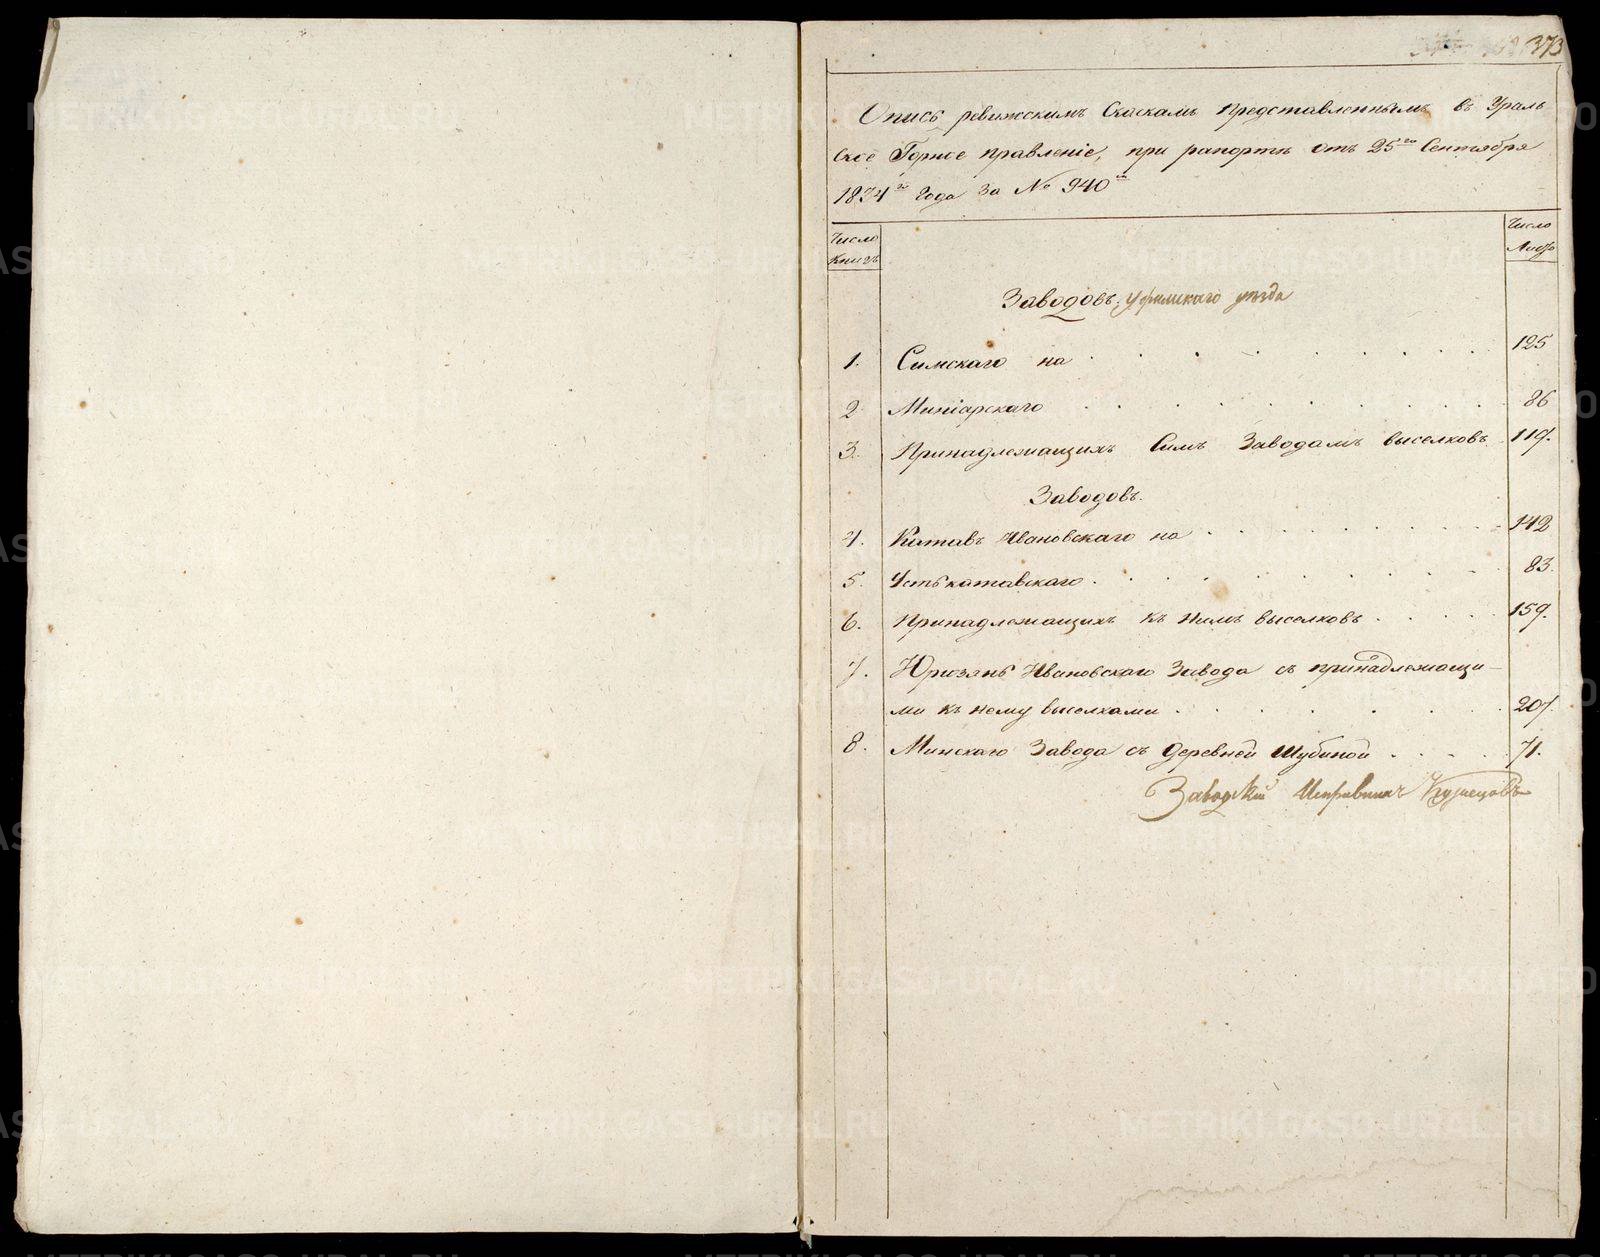 373
Опись ревижскимъ Сказкамъ представленнымъ въ Ураль
ское Горное правленіе, при рапортѣ отъ 25го Сентября
1834го года за № 940м
Число
книгъ
Число
Заводовъ: Уфимскаго уѣзда
1. Симскаго на 125
2. Миніарскаго 86
3. Принадлежащихъ Симъ Заводамъ выселковъ 119.
Заводовъ.
4. Катавъ Ивановскаго на 142
5. Устькатавскаго 83.
6. Принадлежащихъ къ нимъ выселковъ 159.
7. Юрюзань Ивановскаго Завода съ принадлежащи-
ми къ нему выселками 207.
8. Минскаго Завода съ деревней Шубиной 71.
Заводскій Исправникъ Кузнецовъ
METRIKI.GASO-URAL.RU